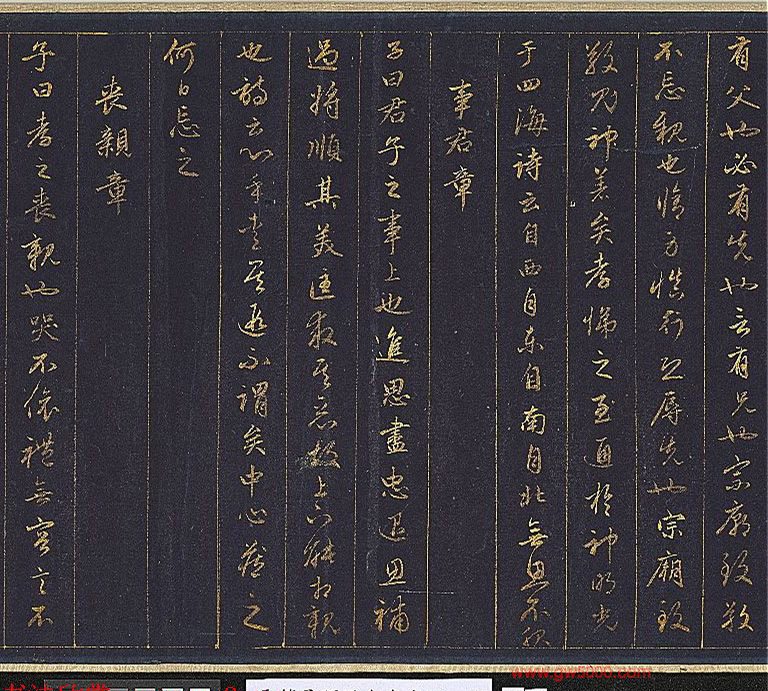 有父也必有先也言有兄也宗廟致敬
不忘親也脩身慎行恐辱先也宗廟致
敬鬼神著矣孝悌之至通於神明光
于四海詩云自西自東自南自北無思不服
事君章
子曰君子之事上也進思盡忠退思補
過將順其美匡救其惡故上下能相親
也詩云心乎愛矣遐不謂矣中心藏之
何日忘之
喪親章
子曰孝之喪親也哭不偯禮無容言不
www.gw5000.com